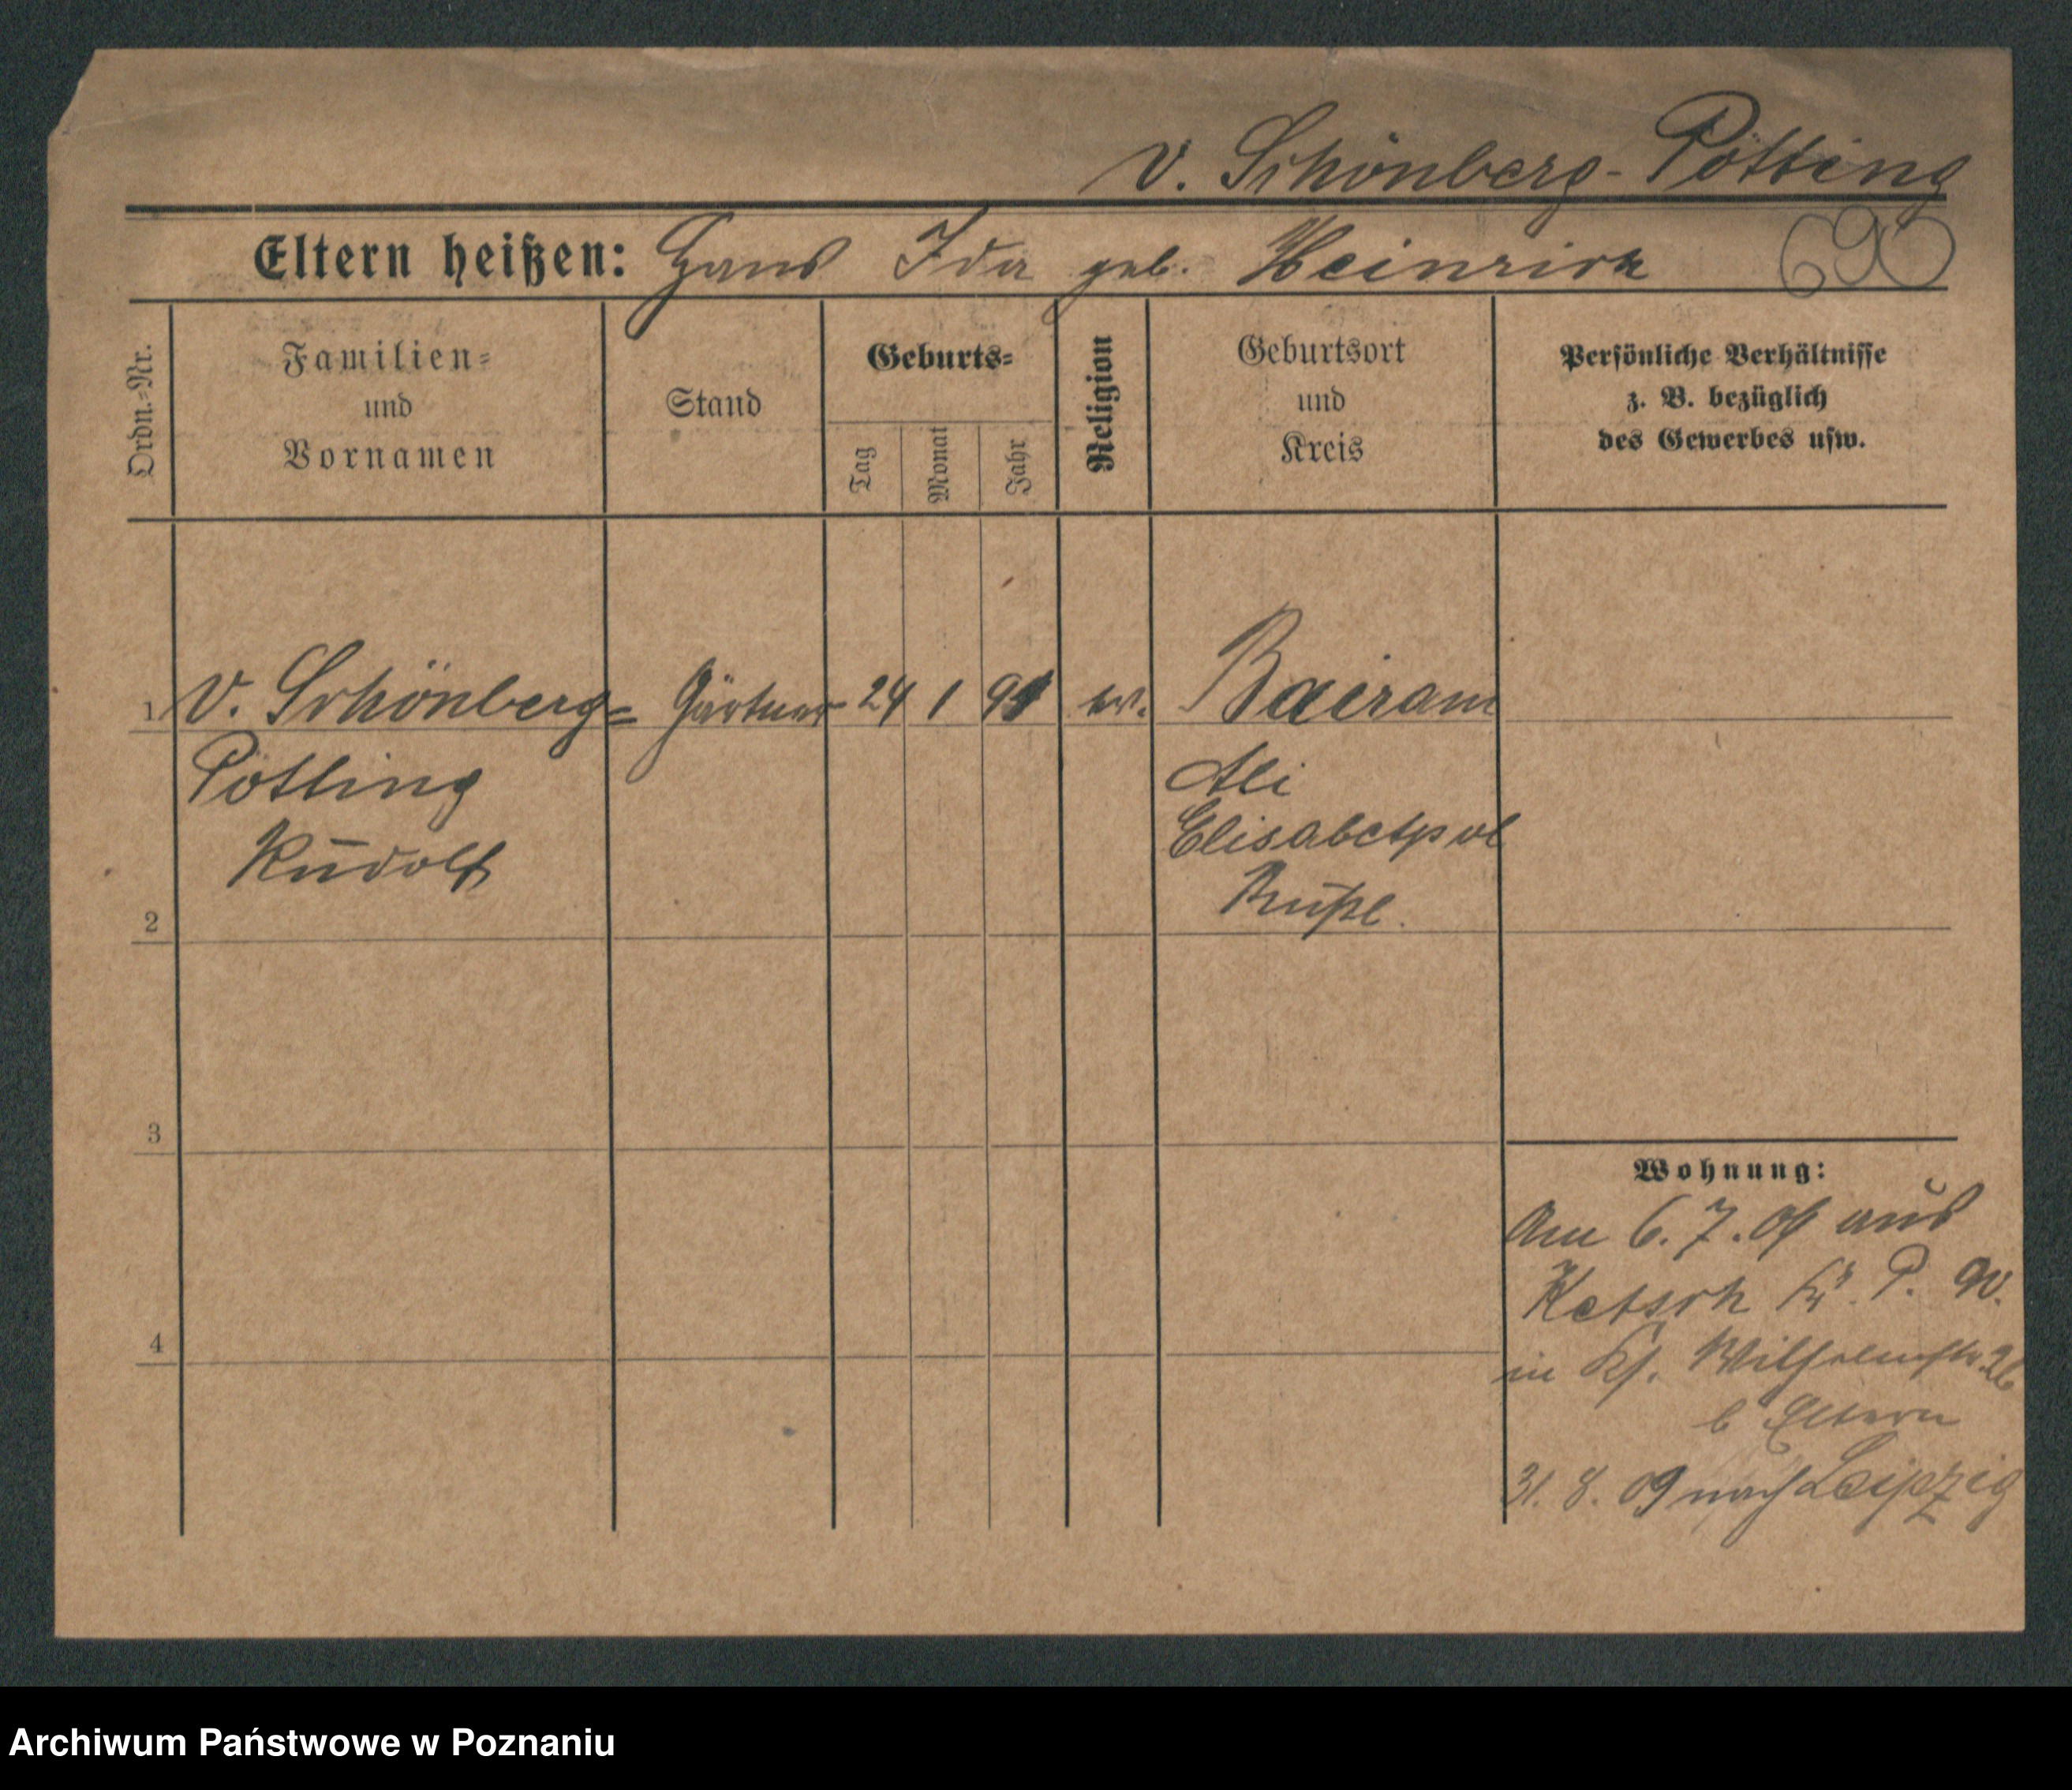 v. Schönberg-Pötting
Eltern heißen: Hans Ida geb. Heinrich
695
Ordn.-Nr.
Familien-
und
Vornamen
Stand
Geburts-
Tag
Monat
Jahr
Religion
Geburtsort
und
Kreis
Persönliche Verhältnisse
z. B. bezüglich
des Gewerbes usw.
1 v. Schönberg= Gärtner 24 1 91 ev. Bairam
Pötting Ali
Elisabetpol
Rudolf
Rußl.
2
3
4
Wohnung:
Am 6.7.09 aus
Ketsch Kr. P. W.
in Kf. Wilhelmstr. 26
b Eltern
31. 8. 09 nach Leipzig
Archiwum Państwowe w Poznaniu